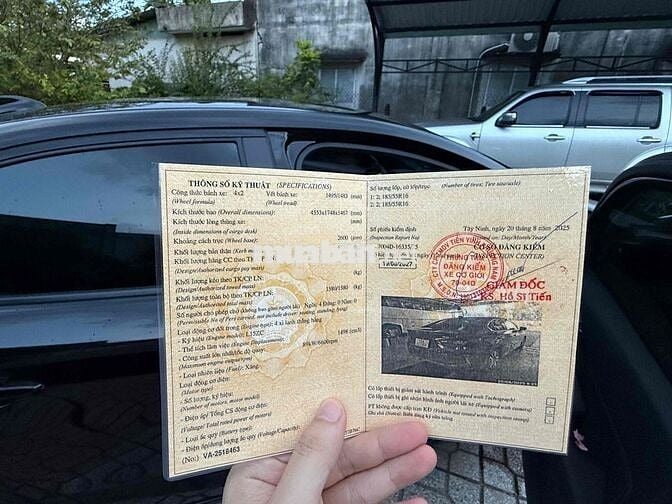 THÔNG SỐ KỸ THUẬT (SPECIFICATIONS)
Công thức bánh xe: 4x2 Vết bánh xe: 1495/1483 (mm)
(Wheel formula) (Wheel tread)
Kích thước bao (Overall dimensions): 4553x1748x1467 (mm)
Kích thước lòng thùng xe: (mm)
(Inside dimensions of cargo desk)
Khoảng cách trục (Wheel base): 2600 (mm)
Khối lượng bản thân (Kerb
Khối lượng hàng CC theo TK
(Design/Authorized cargo pay mass)
Khối lượng kéo theo TK/CP LN: (kg)
(Design/Authorized towed mass)
Khối lượng toàn bộ theo TK/CP LN: 1580/1580 (kg)
(Design/Authorized total mass)
Số người cho phép chở (không bao gồm người lái): Ngồi: 4 Đứng: 0 Nằm: 0
(Permissible No of Pers carried, not include driver: seating, standing, lying)
Loại động cơ đốt trong (Engine type): 4 xi lanh thẳng hàng
- Ký hiệu (Engine model): L15ZC
- Thể tích làm việc (Displacement): 1498 (cm³)
- Công suất lớn nhất/tốc độ quay:
(Maximum engine output/rpm)
- Loại nhiên liệu (Fuel): Xăng
Loại động cơ điện:
(Motor type)
- Số lượng, ký hiệu:
(Number of motors, motor model)
- Điện áp/ Tổng CS động cơ điện:
(Voltage/ Total rated power of motors)
- Loại ắc quy (Battery type):
- Điện áp/dung lượng ắc quy (Voltage/Capacity):
(No.: VA-2518463
Số lượng lốp, cỡ lốp/trục (Number of tires; Tire size/axle)
1: 2; 185/55R16
2: 2; 185/55R16
Số phiếu kiểm định
(Inspection Report No)
7004D-16335/
Tây Ninh, ngày 20 tháng 8 năm 2025
(Issued on: Day/Month/Year)
CƠ SỞ ĐĂNG KIỂM
(INSPECTION CENTER)
TRUNG TÂM
ĐĂNG KIỂM
XE CƠ GIỚI
70-04D
GIÁM ĐỐC
KS. Hồ Sĩ Tiến
Có lắp thiết bị giám sát hành trình (Equipped with Tachograph)
Có lắp thiết bị ghi nhận hình ảnh người lái xe (Equipped with camera)
PT không được cấp tem KĐ (Vehicle not issued with inspection stamp)
Ghi chú (Notes): Biển đăng ký nền trắng